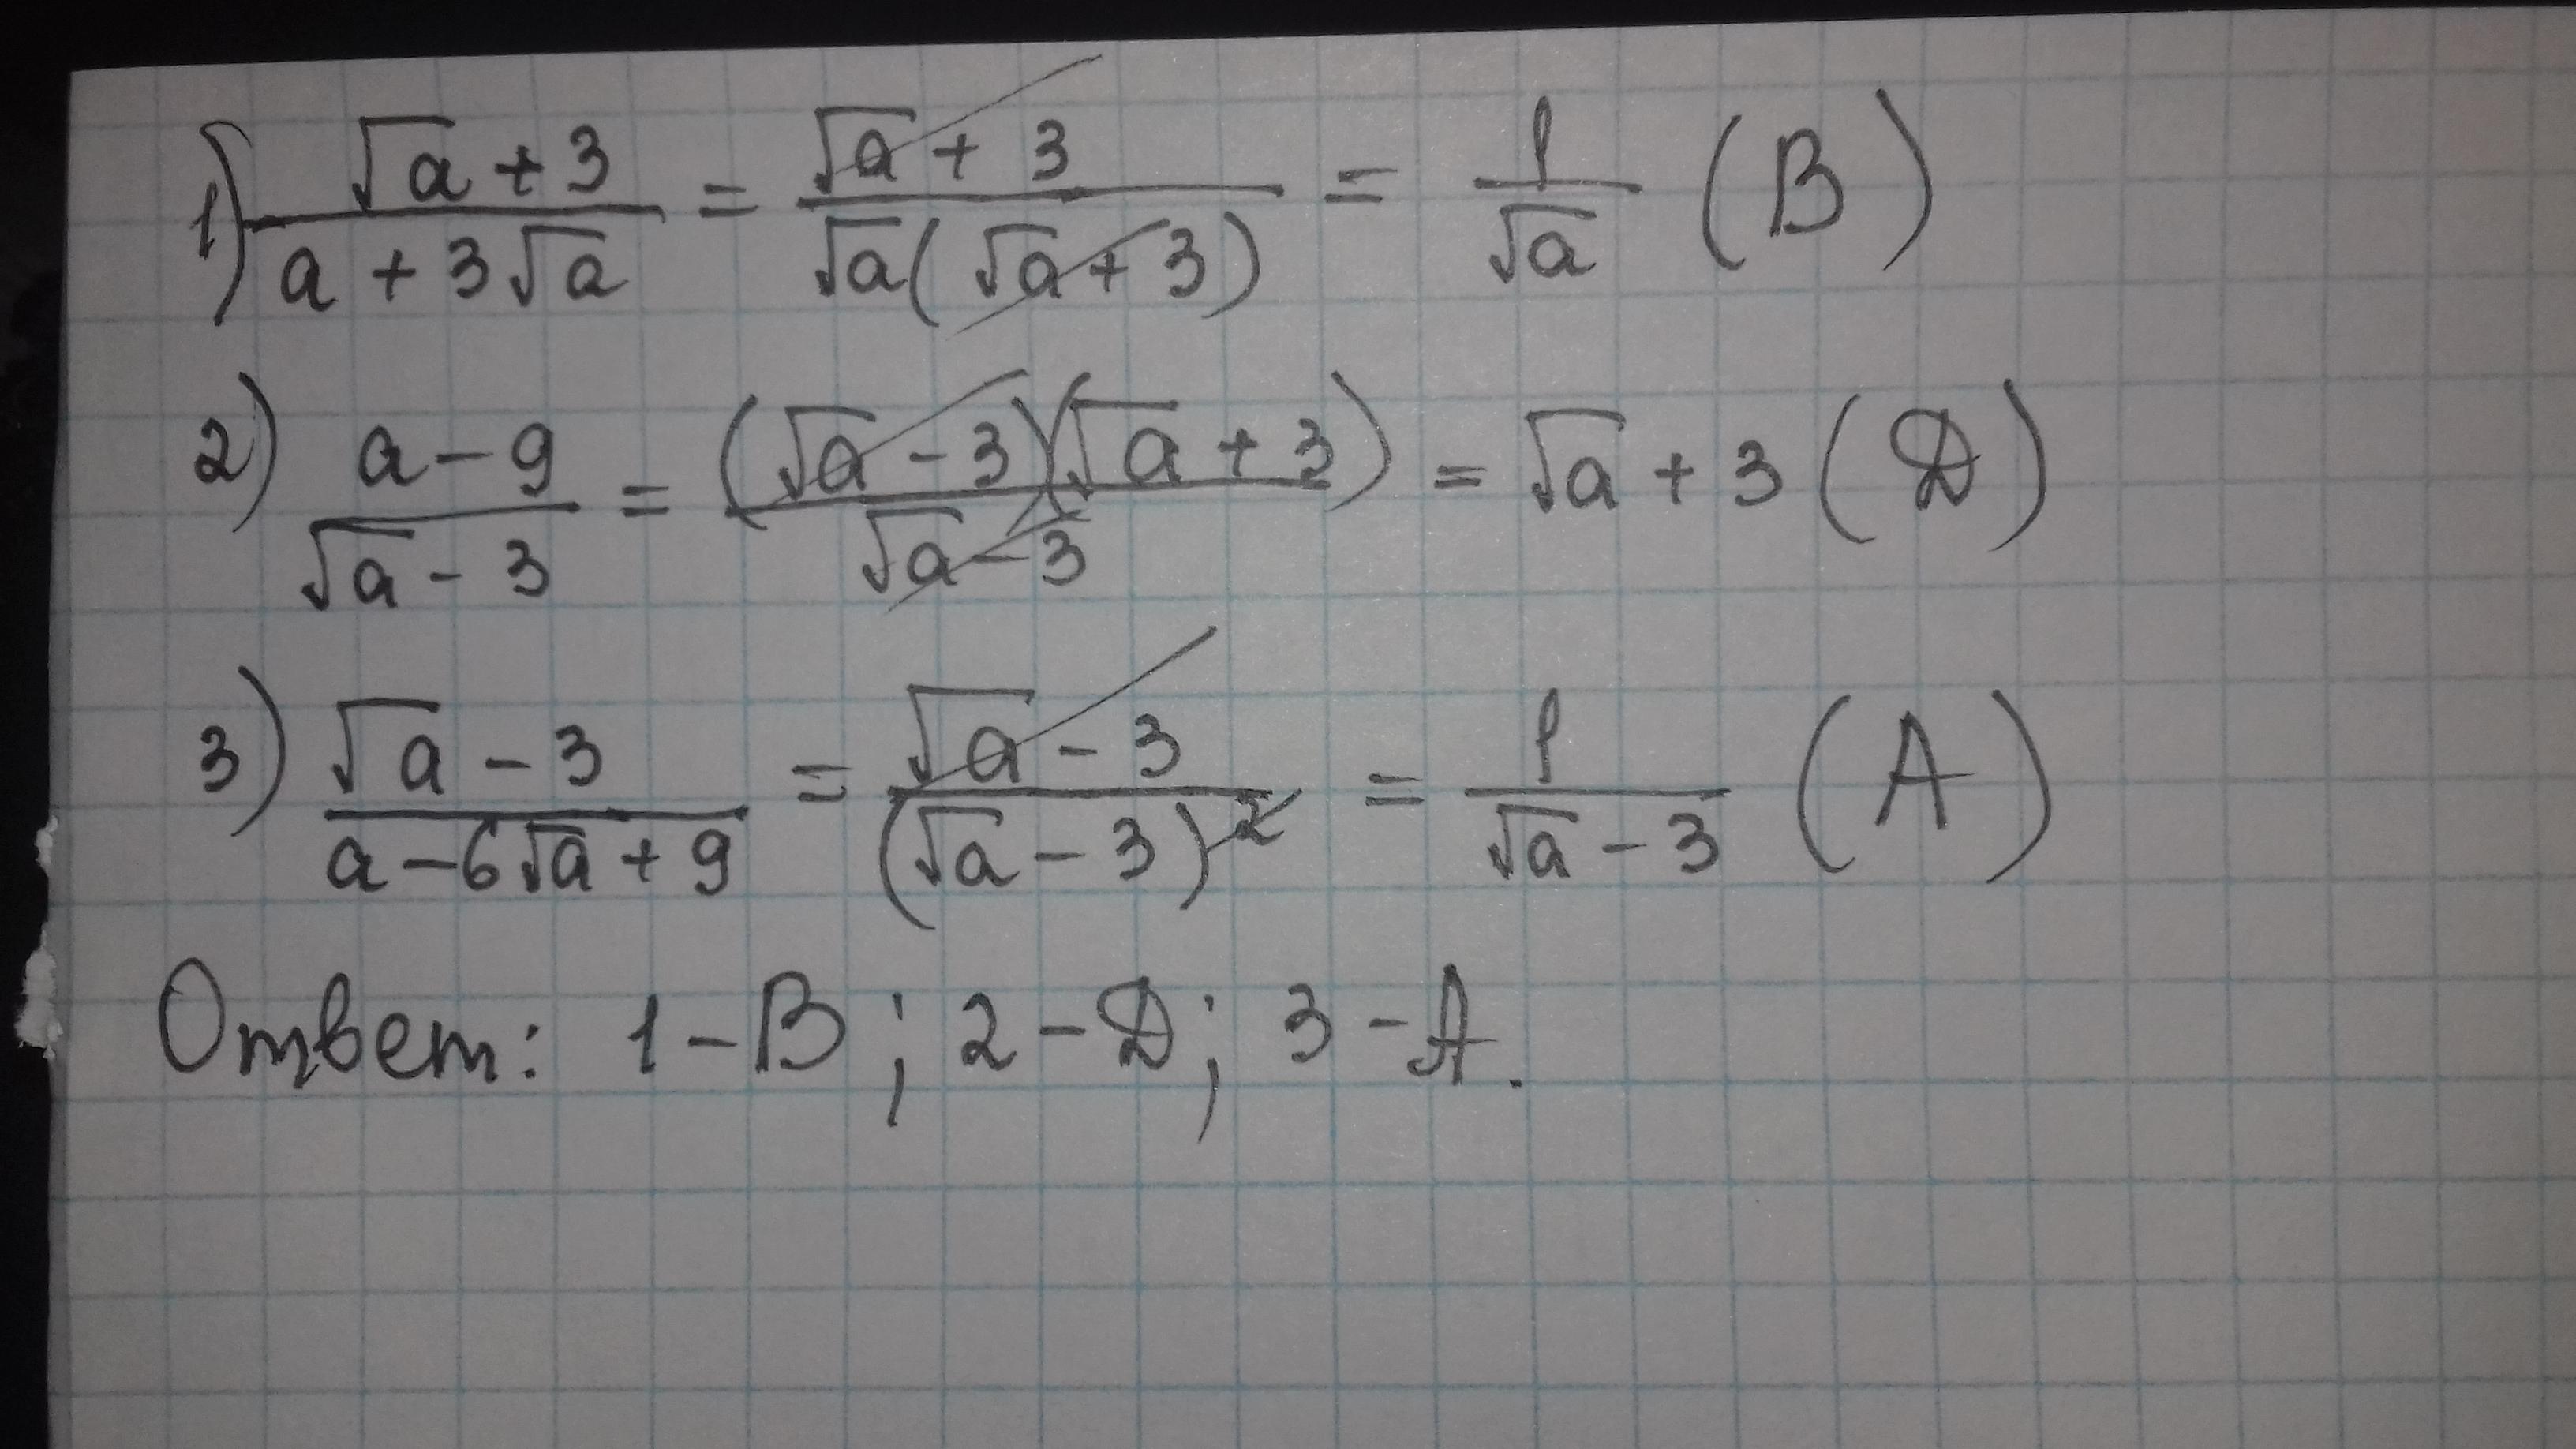 1) (√a + 3)/(a + 3√a) = (√a + 3)/(√a(√a + 3)) = 1/√a (B)
2) (a - 9)/(√a - 3) = ((√a - 3)(√a + 3))/(√a - 3) = √a + 3 (D)
3) (√a - 3)/(a - 6√a + 9) = (√a - 3)/(√a - 3)² = 1/(√a - 3) (A)
Ответ: 1 - B; 2 - D; 3 - A.